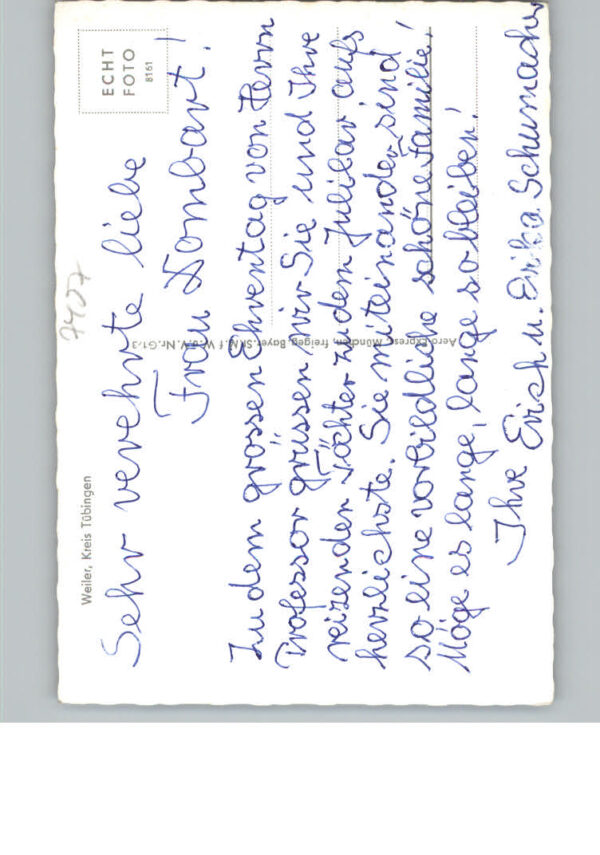 Weiler, Kreis Tübingen
ECHT
FOTO
8161
7407
Sehr verehrte liebe
Frau Lombart!
Zu dem grossen Ehrentag von Herrn
Professor grüssen wir Sie und Ihre
reizenden Töchter zu dem Jubilar aufs
herzlichste. Sie miteinander sind
so eine vorbildliche schöne Familie!
Möge es lange, lange so bleiben!
Ihre Erich u. Erika Schumacher
Aero-Express, München, freigeg. Bayer. St. M. f. W. u. V. Nr. G1-3